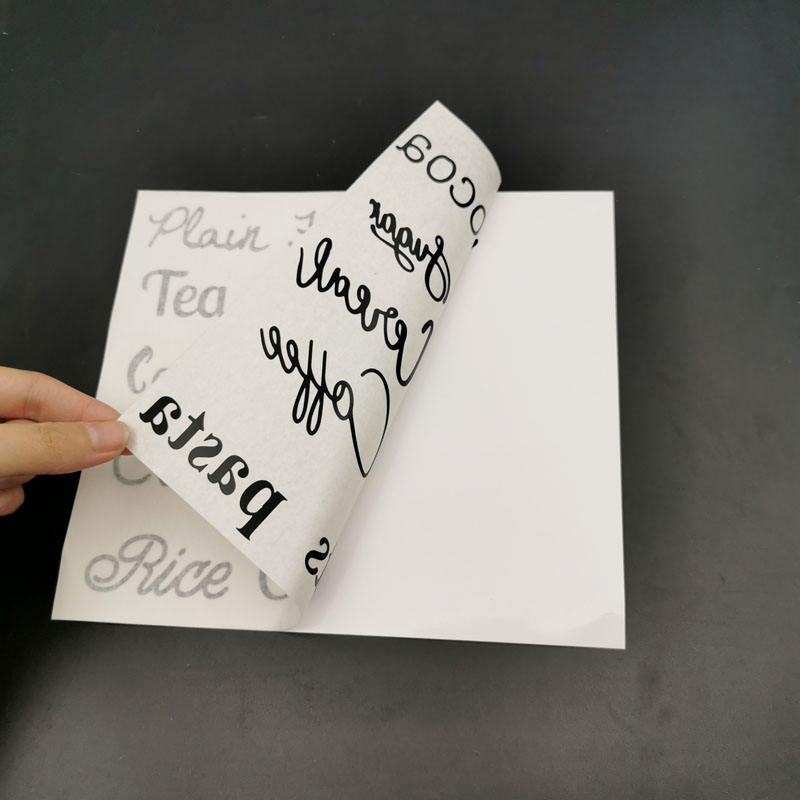 Plain
Tea
Rice
Cocoa
Sugar
Cereal
Coffee
pasta